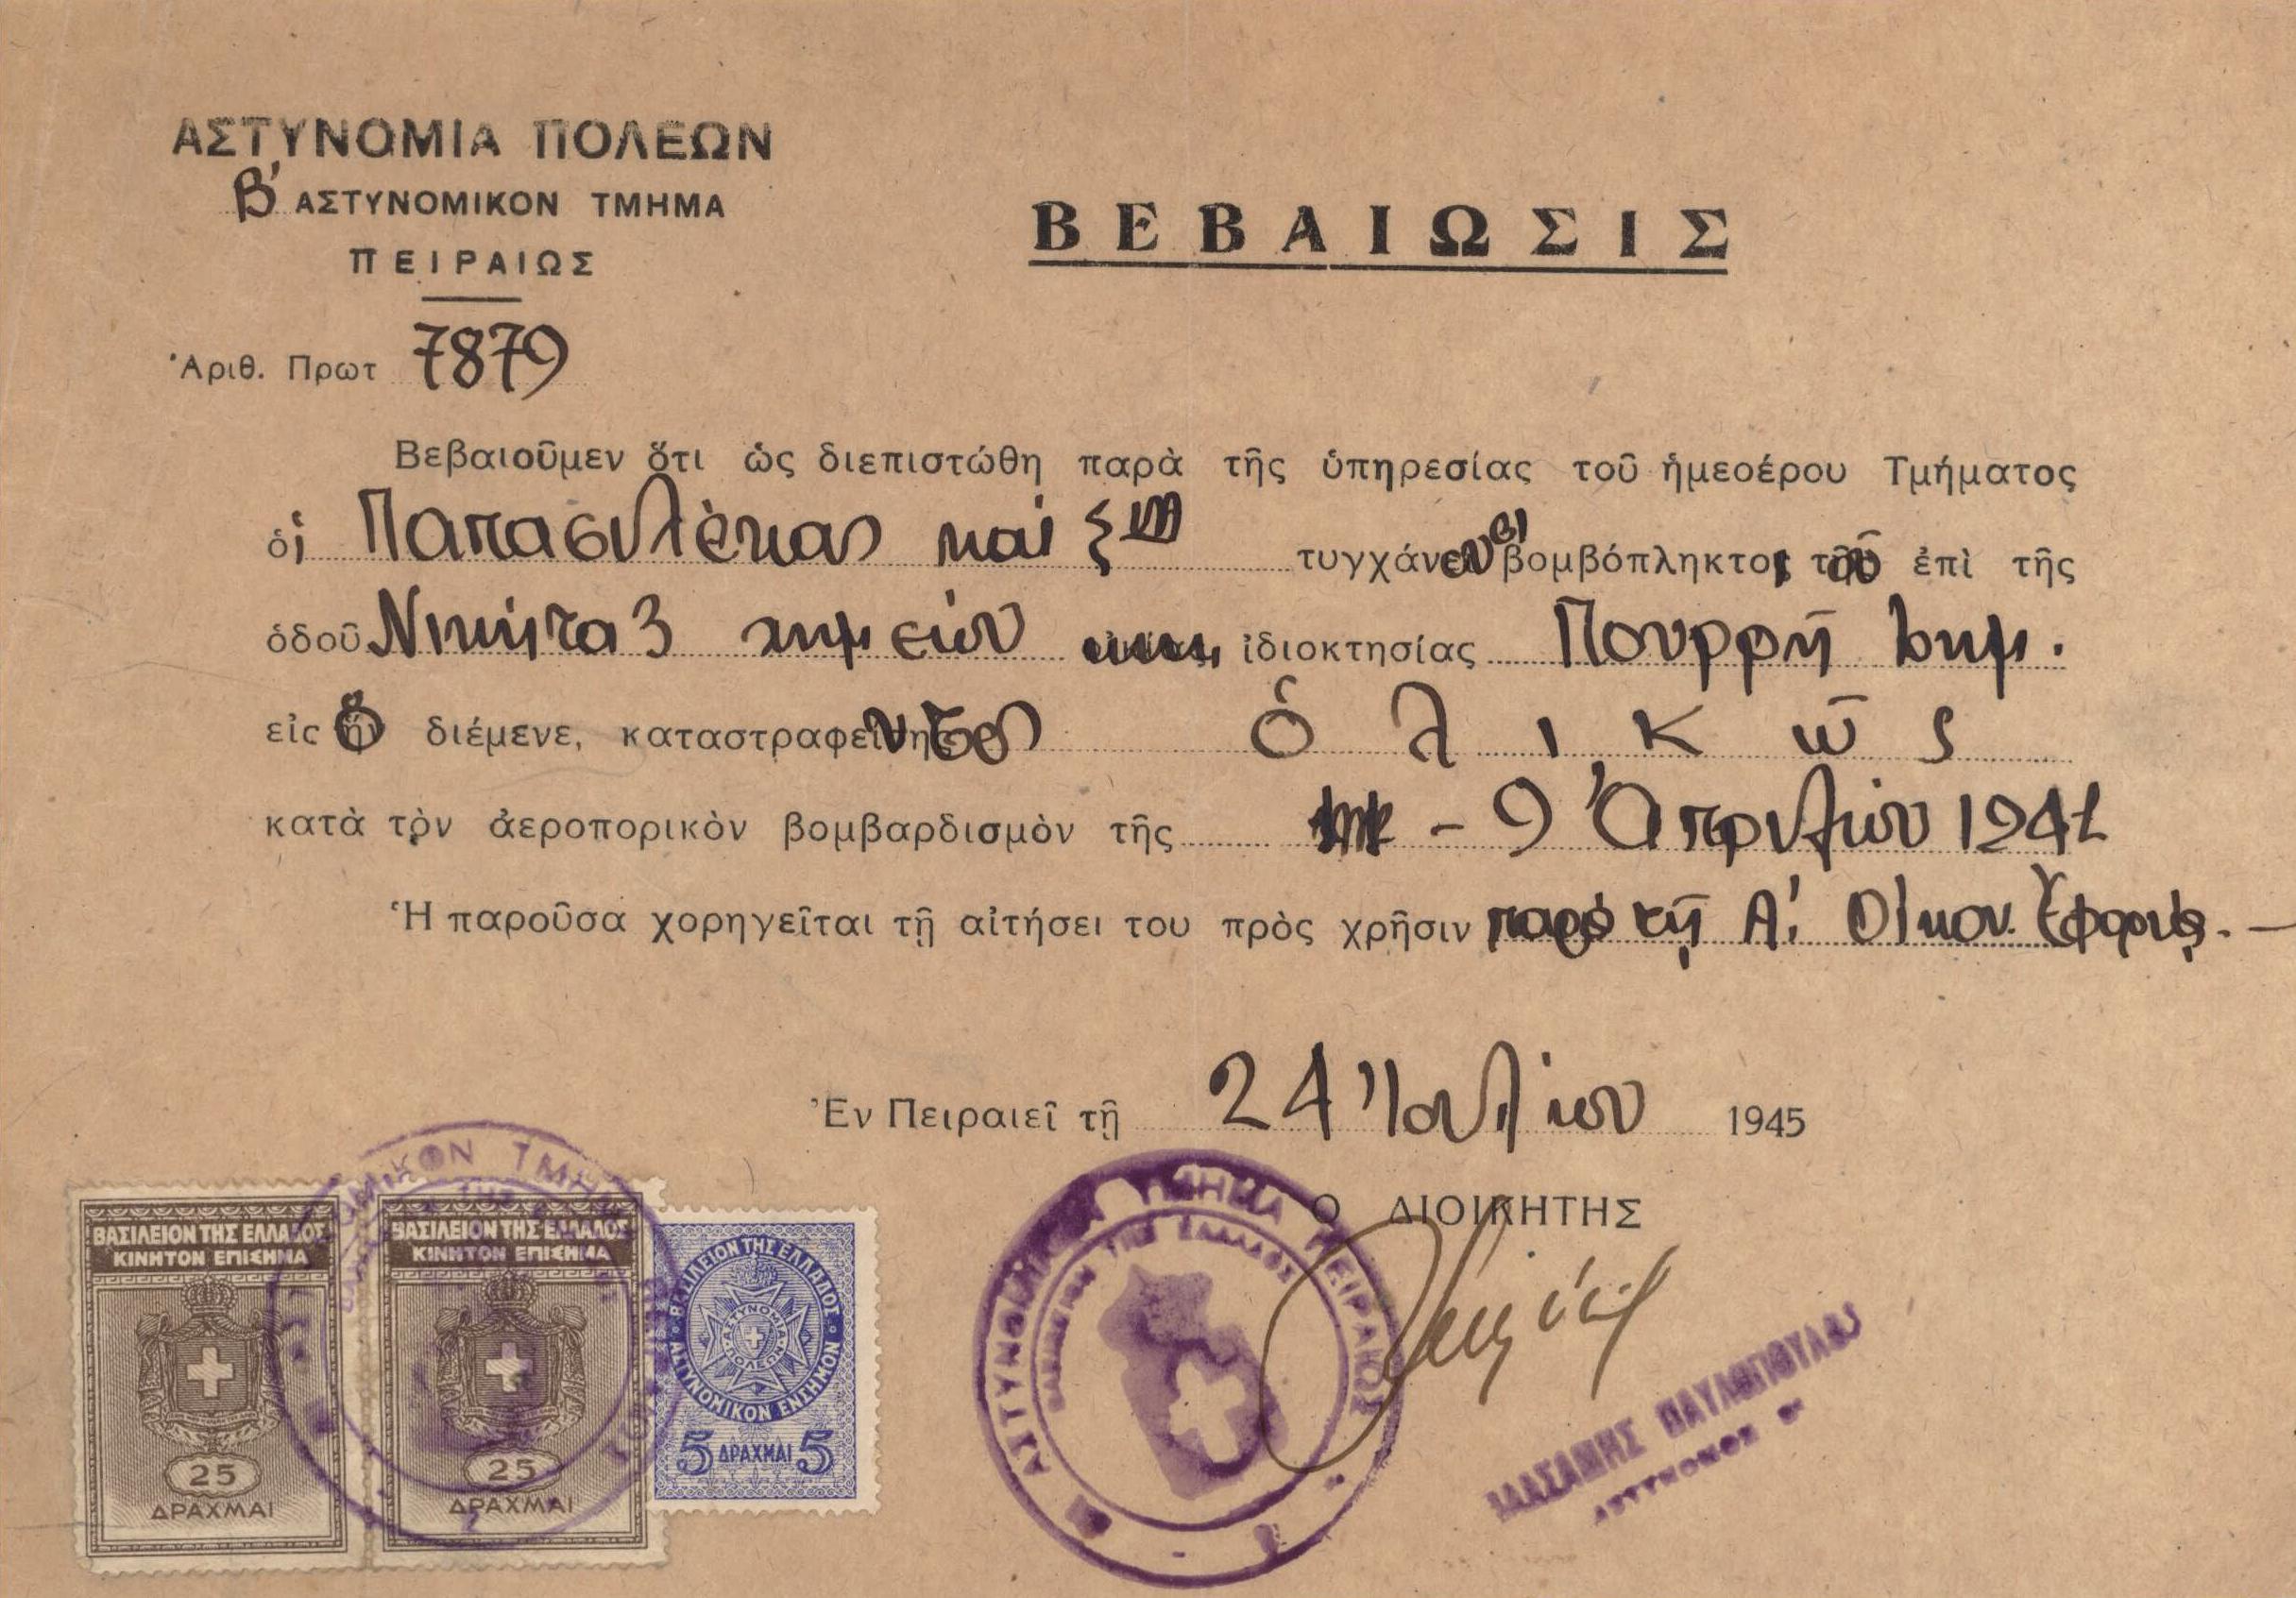 ΑΣΤΥΝΟΜΙΑ ΠΟΛΕΩΝ
Β' ΑΣΤΥΝΟΜΙΚΟΝ ΤΜΗΜΑ
ΠΕΙΡΑΙΩΣ
ΒΕΒΑΙΩΣΙΣ
Ἀριθ. Πρωτ 7879
Βεβαιοῦμεν ὅτι ὡς διεπιστώθη παρὰ τῆς ὑπηρεσίας τοῦ ἡμεοέρου Τμήματος
οἱ Παπασιλέκας καί Σια τυγχάνουν βομβόπληκτοι τοῦ ἐπὶ τῆς
ὁδοῦ Νικήτα 3 χημείου ἰδιοκτησίας Πουρρῆ Δημ.
εἰς ὃ διέμενε, καταστραφέντος ὁλικῶς
κατὰ τὸν ἀεροπορικὸν βομβαρδισμὸν τῆς - 9 Ἀπριλίου 1941
Ἡ παροῦσα χορηγεῖται τῇ αἰτήσει του πρὸς χρῆσιν παρὰ τῇ Α! Οἰκον. Ἐφορίᾳ. —
Ἐν Πειραιεῖ τῇ 24 Ἰουλίου 1945
Ο ΔΙΟΙΚΗΤΗΣ
ΒΑΣΙΛΕΙΟΝ ΤΗΣ ΕΛΛΑΔΟΣ
ΚΙΝΗΤΟΝ ΕΠΙΣΗΜΑ
25
ΔΡΑΧΜΑΙ
ΒΑΣΙΛΕΙΟΝ ΤΗΣ ΕΛΛΑΔΟΣ
ΚΙΝΗΤΟΝ ΕΠΙΣΗΜΑ
25
ΔΡΑΧΜΑΙ
ΒΑΣΙΛΕΙΟΝ ΤΗΣ ΕΛΛΑΔΟΣ
ΑΣΤΥΝΟΜΙΑ ΠΟΛΕΩΝ
ΑΣΤΥΝΟΜΙΚΟΝ ΕΝΣΗΜΟΝ
5 ΔΡΑΧΜΑΙ 5
ΠΕΙΡΑΙΩΣ
ΒΑΣΙΛΕΙΟΝ ΤΗΣ ΕΛΛΑΔΟΣ
ΠΑΥΛΟΠΟΥΛΟΣ
ΑΣΤΥΝΟΜΟΣ Β'